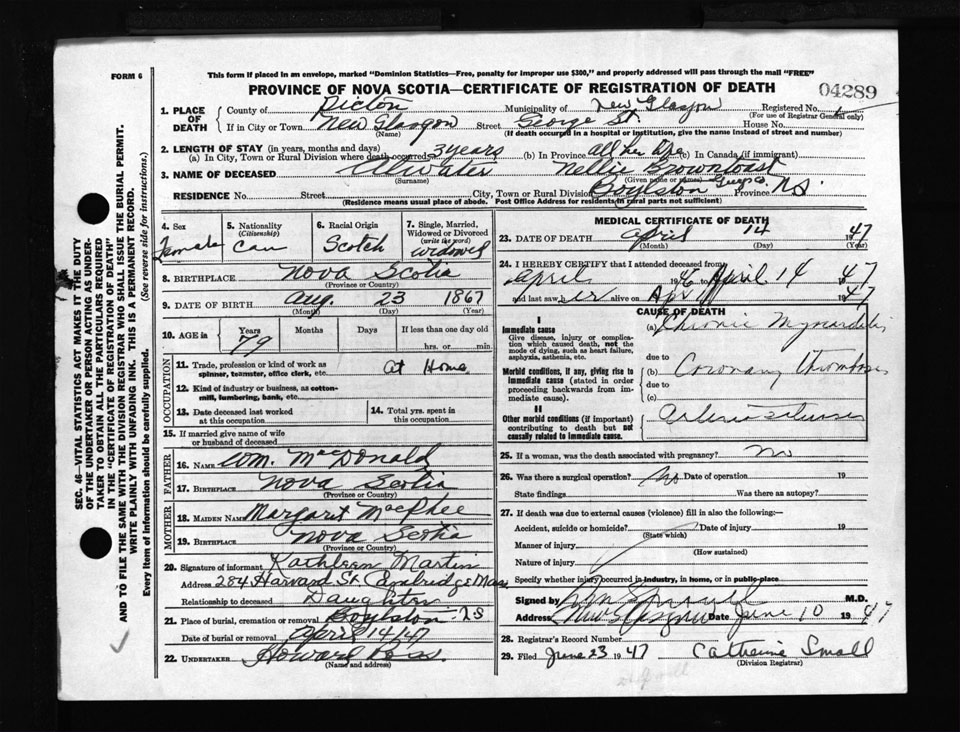 This form if placed in an envelope, marked "Dominion Statistics—Free, penalty for improper use $300," and properly addressed will pass through the mail "FREE"
FORM 6
PROVINCE OF NOVA SCOTIA—CERTIFICATE OF REGISTRATION OF DEATH
04289
1. PLACE OF DEATH
County of Pictou Municipality of New Glasgow Registered No.
(For use of Registrar General only)
If in City or Town New Glasgow Street George St. House No.
(Name) (If death occurred in a hospital or institution, give the name instead of street and number)
2. LENGTH OF STAY (in years, months and days)
(a) In City, Town or Rural Division where death occurred 3 years (b) In Province All her life (c) In Canada (if immigrant)
3. NAME OF DECEASED Atwater Nellie
(Surname) (Given name or names)
RESIDENCE No. Street City, Town or Rural Division Boylston Guys Co. Province N.S.
(Residence means usual place of abode. Post Office Address for residents in rural parts not sufficient)
4. Sex Female
5. Nationality (Citizenship) Can
6. Racial Origin Scotch
7. Single, Married, Widowed or Divorced (write the word) Widowed
8. BIRTHPLACE Nova Scotia
(Province or Country)
9. DATE OF BIRTH Aug. 23 1867
(Month) (Day) (Year)
10. AGE in Years 79 Months Days If less than one day old hrs. or min
OCCUPATION
11. Trade, profession or kind of work as spinner, teamster, office clerk, etc. At Home
12. Kind of industry or business, as cotton-mill, lumbering, bank, etc.
13. Date deceased last worked at this occupation
14. Total yrs. spent in this occupation
15. If married give name of wife or husband of deceased
FATHER
16. NAME Wm. MacDonald
17. BIRTHPLACE Nova Scotia
(Province or Country)
MOTHER
18. MAIDEN NAME Margaret MacPhee
19. BIRTHPLACE Nova Scotia
(Province or Country)
20. Signature of informant Kathleen Martin
Address 284 Harvard St. Cambridge Mass
Relationship to deceased Daughter
21. Place of burial, cremation or removal Boylston
Date of burial or removal April 14/47
22. UNDERTAKER Howard Ross
(Name and address)
MEDICAL CERTIFICATE OF DEATH
23. DATE OF DEATH April 14 1947
(Month) (Day) (Year)
24. I HEREBY CERTIFY that I attended deceased from
April 1946 April 14 1947
and last saw her alive on Apr 1947
CAUSE OF DEATH
I
Immediate cause
Give disease, injury or complication which caused death, not the mode of dying, such as heart failure, asphyxia, asthenia, etc.
(a) Chronic Myocarditis
due to
Morbid conditions, if any, giving rise to immediate cause (stated in order proceeding backwards from immediate cause).
(b) Coronary Thrombosis
due to
(c)
II
Other morbid conditions (if important) contributing to death but not causally related to immediate cause.
25. If a woman, was the death associated with pregnancy? no
26. Was there a surgical operation? no Date of operation 19
State findings Was there an autopsy?
27. If death was due to external causes (violence) fill in also the following:—
Accident, suicide or homicide? Date of injury 19
(State which)
Manner of injury
(How sustained)
Nature of injury
Specify whether injury occurred in industry, in home, or in public place
Signed by M.D.
Address New Glasgow Date June 10 1947
28. Registrar's Record Number
29. Filed June 23 1947 Catherine Small
(Division Registrar)
SEC. 46—VITAL STATISTICS ACT MAKES IT THE DUTY
OF THE UNDERTAKER OR PERSON ACTING AS UNDER-
TAKER TO OBTAIN ALL THE PARTICULARS REQUIRED
IN THE "CERTIFICATE OF REGISTRATION OF DEATH"
AND TO FILE THE SAME WITH THE DIVISION REGISTRAR WHO SHALL ISSUE THE BURIAL PERMIT.
WRITE PLAINLY WITH UNFADING INK. THIS IS A PERMANENT RECORD.
Every item of information should be carefully supplied. (See reverse side for instructions.)